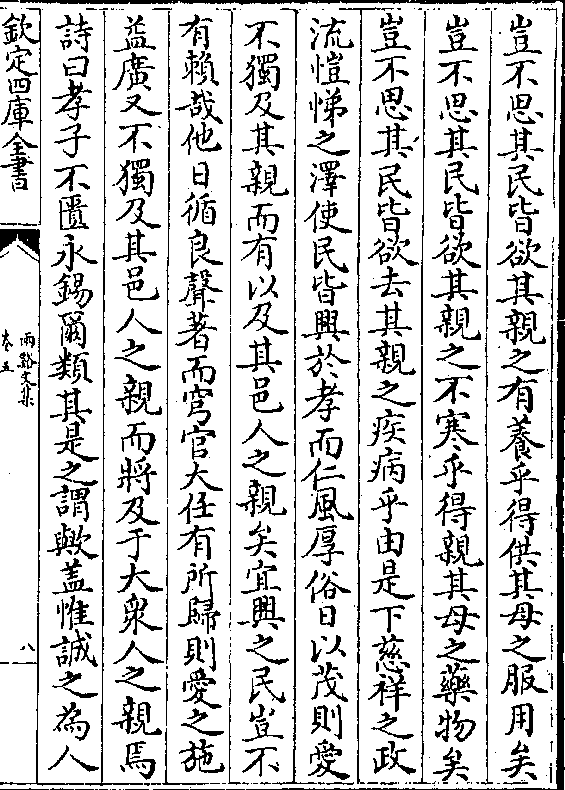 豈不思其民皆欲其親之有養乎得供其母之服用矣
豈不思其民皆欲其親之不寒乎得親其母之藥物矣
豈不思其民皆欲去其親之疾病乎由是下慈祥之政
流愷悌之澤使民皆興於孝而仁風厚俗日以茂則愛
不獨及其親而有以及其邑人之親矣宜興之民豈不
有賴哉他日循良聲著而穹官大任有所歸則愛之施
益廣又不獨及其邑人之親而將及于大衆人之親焉
詩曰孝子不匱永錫爾類其是之謂歟蓋惟誠之為人
欽定四庫全書
兩谿文集
卷五
八